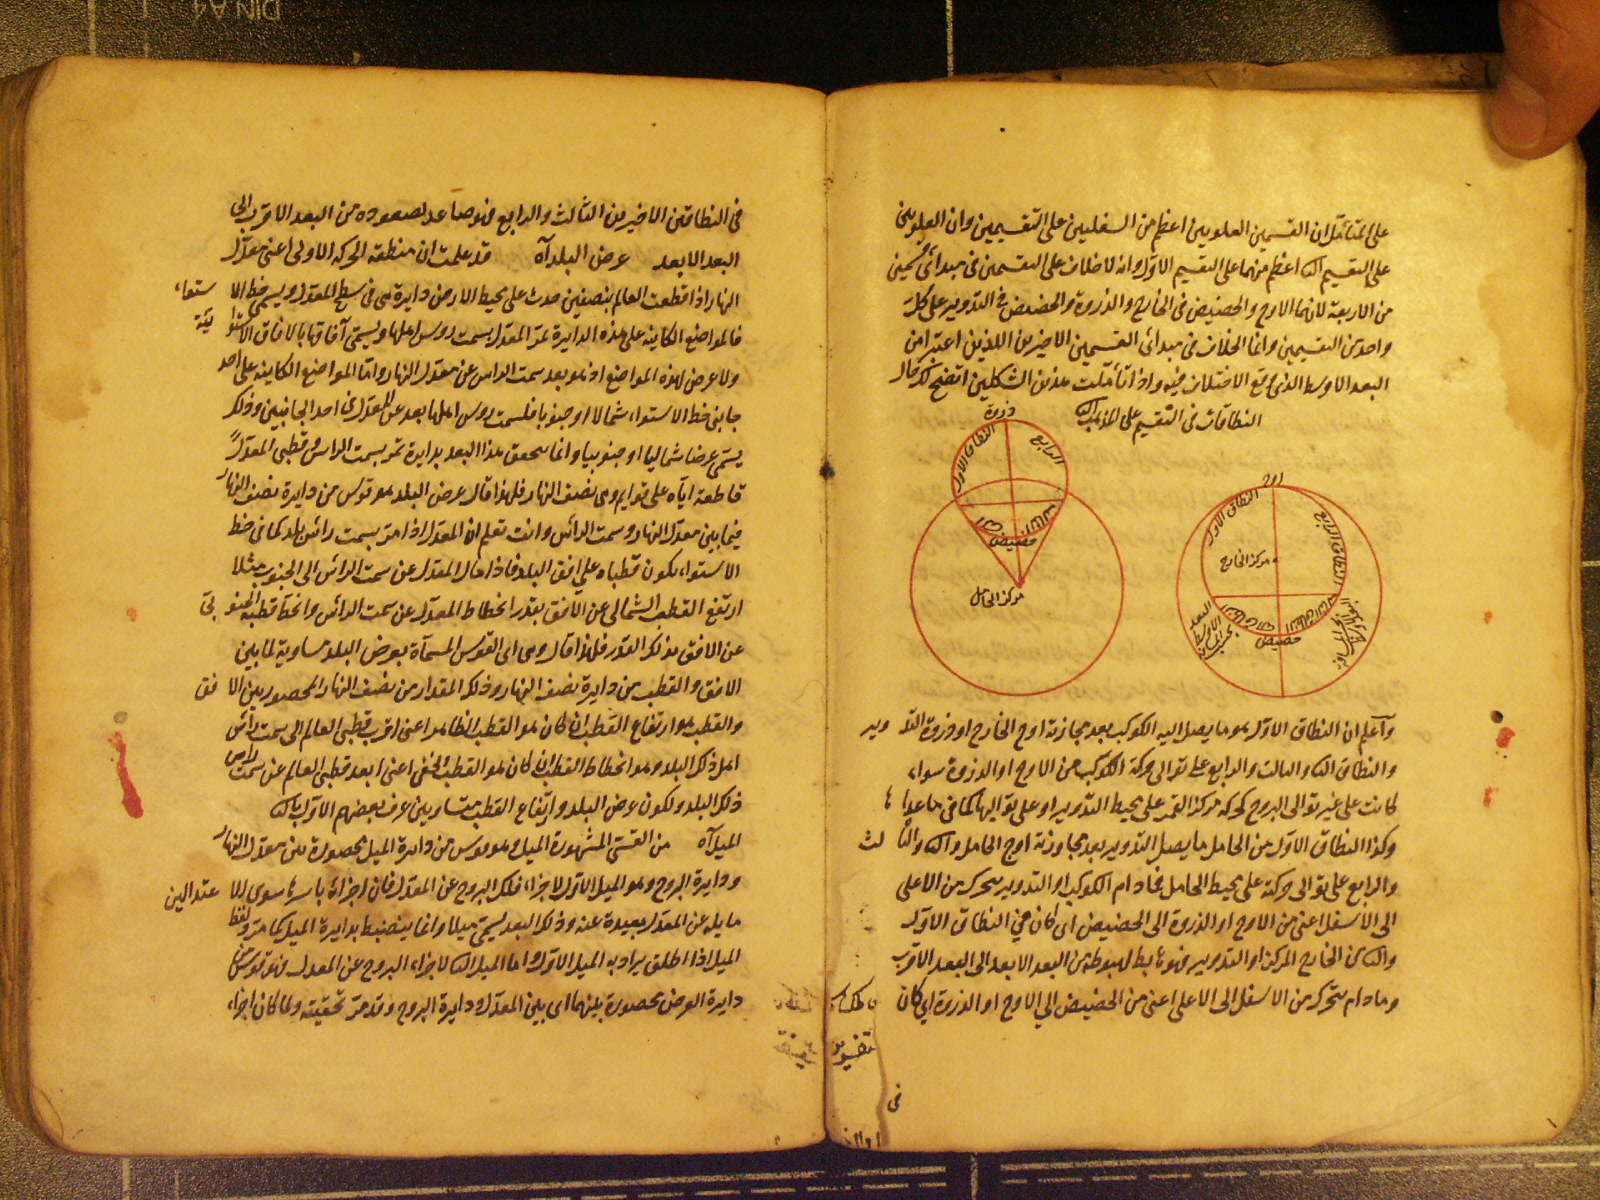 على انك تتأمل ان القسمين العلويين اعظم من السفليين على التقسيمين وان العلويين
على التقسيم الثاني اعظم منهما على التقسيم الاول وانه لا خلاف على التقسيمين في مبدائي قسمين
من الاربعة لانهما الاوج والحضيض في الخارج والذروة والحضيض في التدوير على كل
واحد من التقسيمين وانما الخلاف في مبدائي القسمين الاخيرين اللذين اعتبرا من
البعد الاوسط الذي وقع الاختلاف فيه واذا تأملت هذين الشكلين اتضح لك حال
النطاقات في التقسيم على المذهب
ذروة
النطاق الاول
الرابع
حضيض
مركز الحامل
اوج
النطاق الاول
النطاق الرابع
مركز الخارج
البعد الاوسط
حضيض
واعلم ان النطاق الاول هو ما يصل اليه الكوكب بعد مجاوزته اوج الخارج او ذروة التدوير
والنطاق الثاني والثالث والرابع على توالي حركة الكوكب من الاوج او الذروة سواء
كانت على غير توالي البروج كحركة مركز القمر على محيط التدوير او على تواليها كما في ما عداها
وكذا النطاق الاول من الحامل ما يصل التدوير بعد مجاوزته اوج الحامل والثاني والثالث
والرابع على توالي حركته على محيط الحامل فما دام الكوكب او التدوير يتحرك من الاعلى
الى الاسفل اعني من الاوج او الذروة الى الحضيض اي كان في النطاق الاول
والثاني من الخارج المركز او التدوير فهو هابط لهبوطه من البعد الابعد الى البعد الاقرب
وما دام يتحرك من الاسفل الى الاعلى اعني من الحضيض الى الاوج او الذروة اي كان
في
في النطاقين الاخيرين الثالث والرابع فهو صاعد لصعوده من البعد الاقرب الى
البعد الابعد عرض البلد آه قد علمت ان منطقة الحركة الاولى اعني معدل
النهار اذا قطعت العالم بنصفين حدث على محيط الارض دايرة هي في سطح المعدل ويسمى خط الاستواء
فالمواضع الكاينة على هذه الدايرة تمر المعدل بسمت رؤس اهلها ويسمى آفاقها بالافاق الاستوائية
ولا عرض لهذه المواضع اذ هو بعد سمت الراس عن معدل النهار واما المواضع الكاينة على احد
جانبي خط الاستواء شمالا او جنوبا فلسمت رؤس اهلها بعد عن المعدل في احد الجانبين وذلك
يسمى عرضا شماليا او جنوبيا وانما يتحقق هذا البعد بدايرة تمر بسمت الراس وقطبي المعدل
قاطعة اياه على قوايم وهي نصف النهار فلهذا قال عرض البلد هو قوس من دايرة نصف النهار
فيما بين معدل النهار وسمت الراس وانت تعلم ان المعدل اذا مر بسمت راس بلد كما في خط
الاستواء يكون قطباه على افق البلد فاذا مال المعدل عن سمت الراس الى الجنوب مثلا
ارتفع القطب الشمالي عن الافق بقدر انحطاط المعدل عن سمت الراس وانحط قطبه الجنوبي
عن الافق بذلك القدر فلهذا قال وهي اي القوس المسماة بعرض البلد مساوية لما بين
الافق والقطب من دايرة نصف النهار وذلك المقدار من نصف النهار المحصور بين الافق
والقطب هو ارتفاع القطب ان كان هو القطب الظاهر اعني اقرب قطبي العالم الى سمت راس
اهل ذلك البلد وهو انحطاط القطب ان كان هو القطب الخفي اعني ابعد قطبي العالم عن سمت راس
ذلك البلد ولكون عرض البلد وارتفاع القطب متساويين عرف بعضهم الاول بالثاني
الميل آه من القسي المشهورة الميل وهو قوس من دايرة الميل محصورة بين معدل النهار
ودايرة البروج وهو الميل الاول لاجزاء فلك البروج عن المعدل فان اجزاءه باسرها سوى الاعتدالين
مايلة عن المعدل بعيدة عنه وذلك البعد يسمى ميلا وانما ينضبط بدايرة الميل كما مر ولفظ
الميل اذا اطلق يراد به الميل الاول واما الميل الثاني لاجزاء البروج عن المعدل فهو قوس من
دايرة العرض محصورة بينهما اي بين المعدل ودايرة البروج وقد مر تحقيقه ولما كان اجزاء